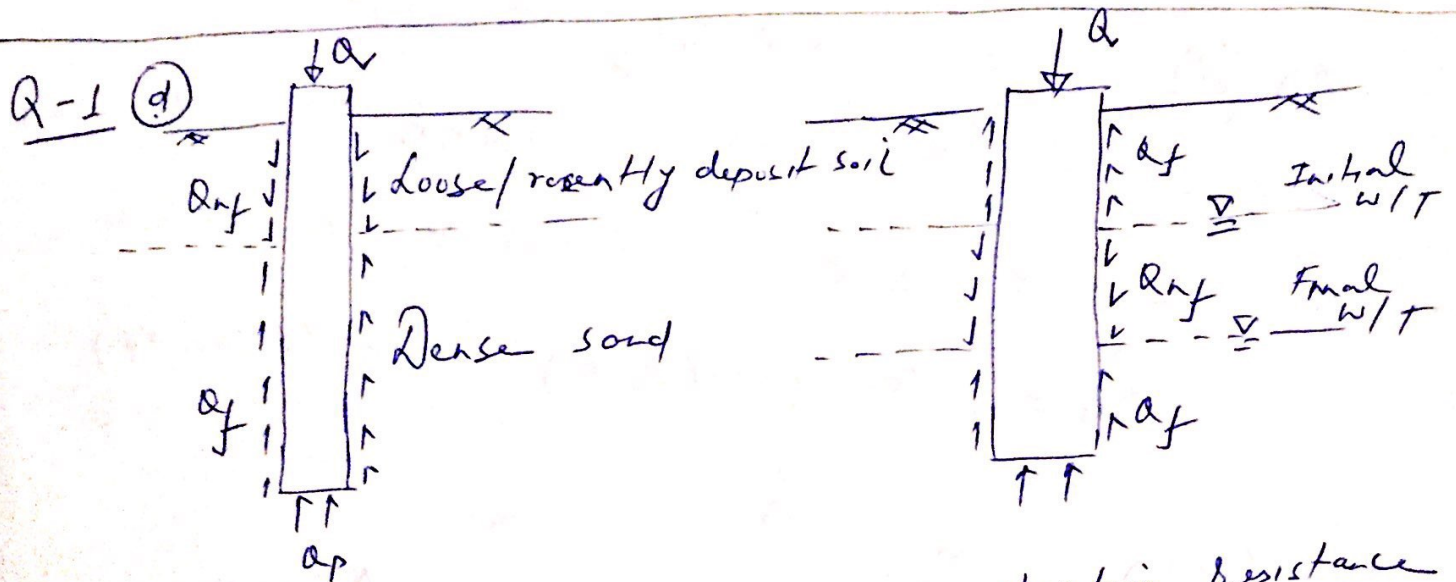 Q-1 (d)
Q
Qnf
Loose/recently deposit soil
Dense sand
Qf
Qp
Q
Qf
Initial
W/T
Qnf
Final
W/T
Qf
Resistance